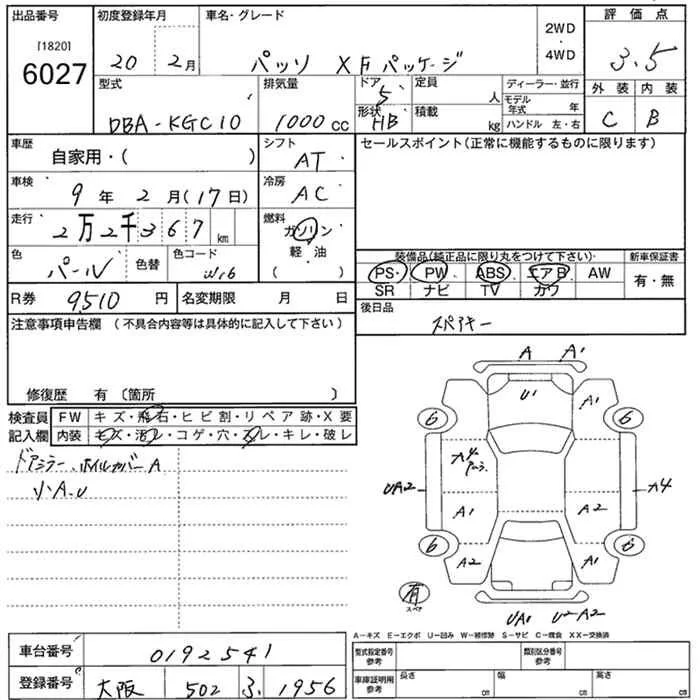 出品番号
[1820]
6027
初度登録年月
20 2月
車名・グレード
パッソ X Fパッケージ
2WD
・
4WD
評価点
3.5
型式
DBA-KGC10
排気量
1000 cc
ドア
5
形状
HB
定員
人
積載
kg
ディーラー・並行
モデル年式 年
ハンドル 左・右
外装 内装
C B
車歴
自家用・( )
シフト
AT
セールスポイント(正常に機能するものに限ります)
車検
9年 2月(17日)
冷房
AC
走行
2万2千367 km
燃料
ガソリン
軽・油
( )
色
パール
色替
色コード
W16
装備品(純正品に限り丸をつけて下さい)
PS PW ABS エアB AW
SR ナビ TV カワ
新車保証書
有・無
R券 9510 円
名変期限 月 日
後日品
スペアキー
注意事項申告欄 (不具合内容等は具体的に記入して下さい)
修復歴 有 〔箇所 〕
検査員
記入欄
FW キズ・飛石・ヒビ割・リペア跡・X要
内装 キズ・汚レ・コゲ・穴・スレ・キレ・破レ
ドアミラー、ホイルカバーA
小A.U
A A1
U1
A1
6 6
UA2
A1 A2
6 6
A2 A1
有
スペア
UA1 U2A2
A-キズ E-エクボ U-凹み W-補修跡 S-サビ C-腐食 XX-交換済
車台番号
0192541
登録番号
大阪 502 3 1956
型式指定番号
参考
類別区分番号
参考
車庫証明用
参考
長さ cm
幅 cm
高さ cm